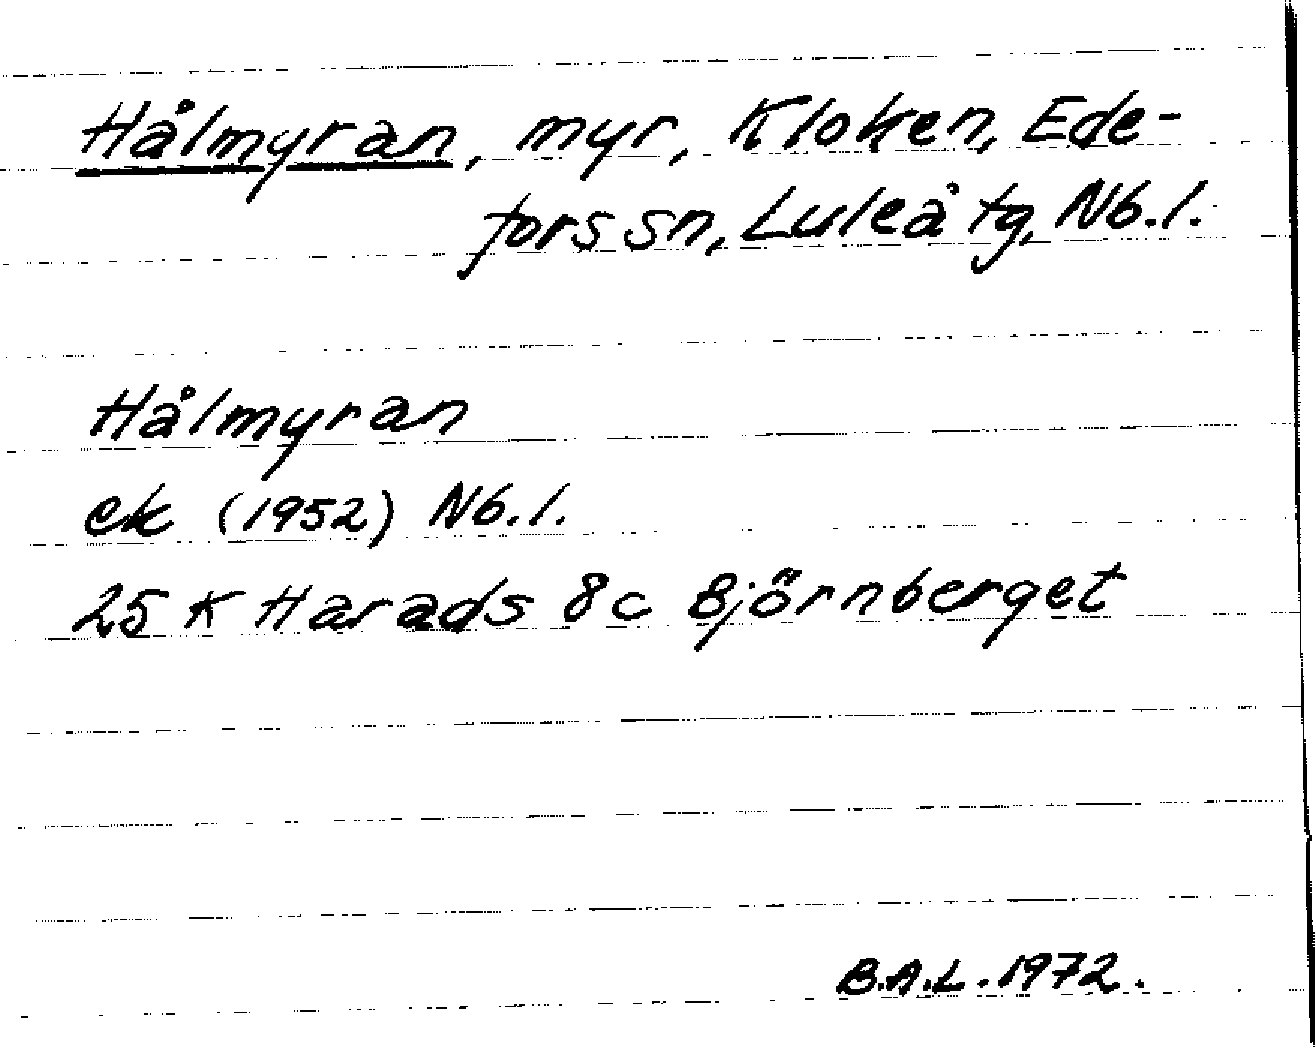 Hålmyran, myr, Kloken, Ede-
fors sn, Luleå tg, Nb.l.
Hålmyran
ek (1952) Nb.l.
25 K Harads 8c Björnberget
B.A.L. 1972.